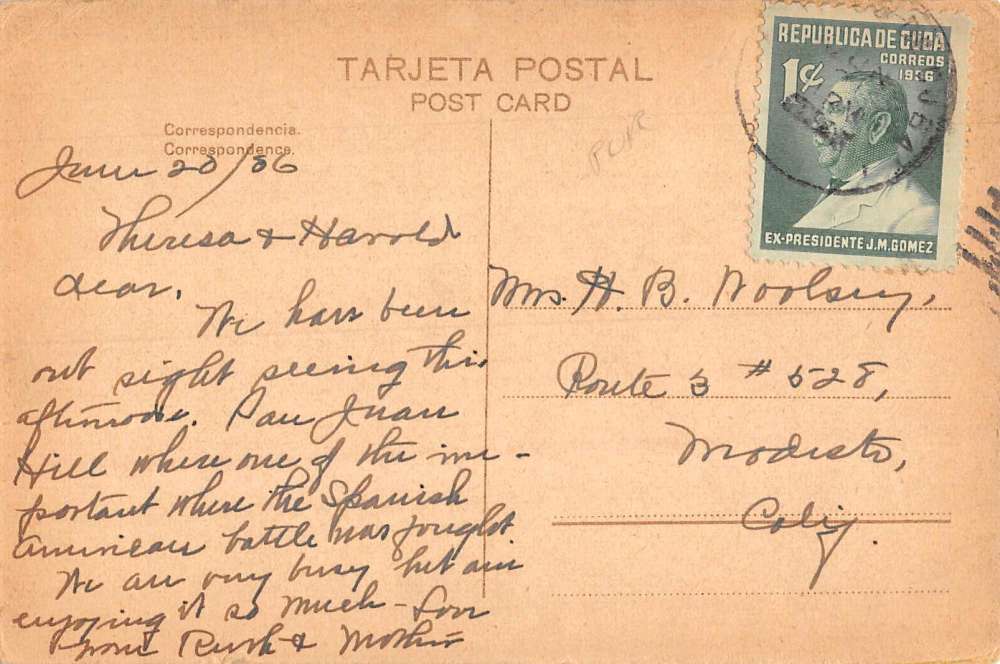 TARJETA POSTAL
POST CARD
Correspondencia.
Correspondence.
June 20/36
Theresa & Harold
dear,
We have been
out sight seeing this
afternoon. San Juan
Hill where one of the im-
portant where the Spanish
American battle was fought
We are very busy but am
enjoying it so much - Love
from Ruth & Mother
PUNR
REPUBLICA DE CUBA
CORREOS
1936
1¢
EX-PRESIDENTE J.M. GOMEZ
Mrs. H. B. Woolsey,
Route 3 # 528,
Modesto,
Calif.